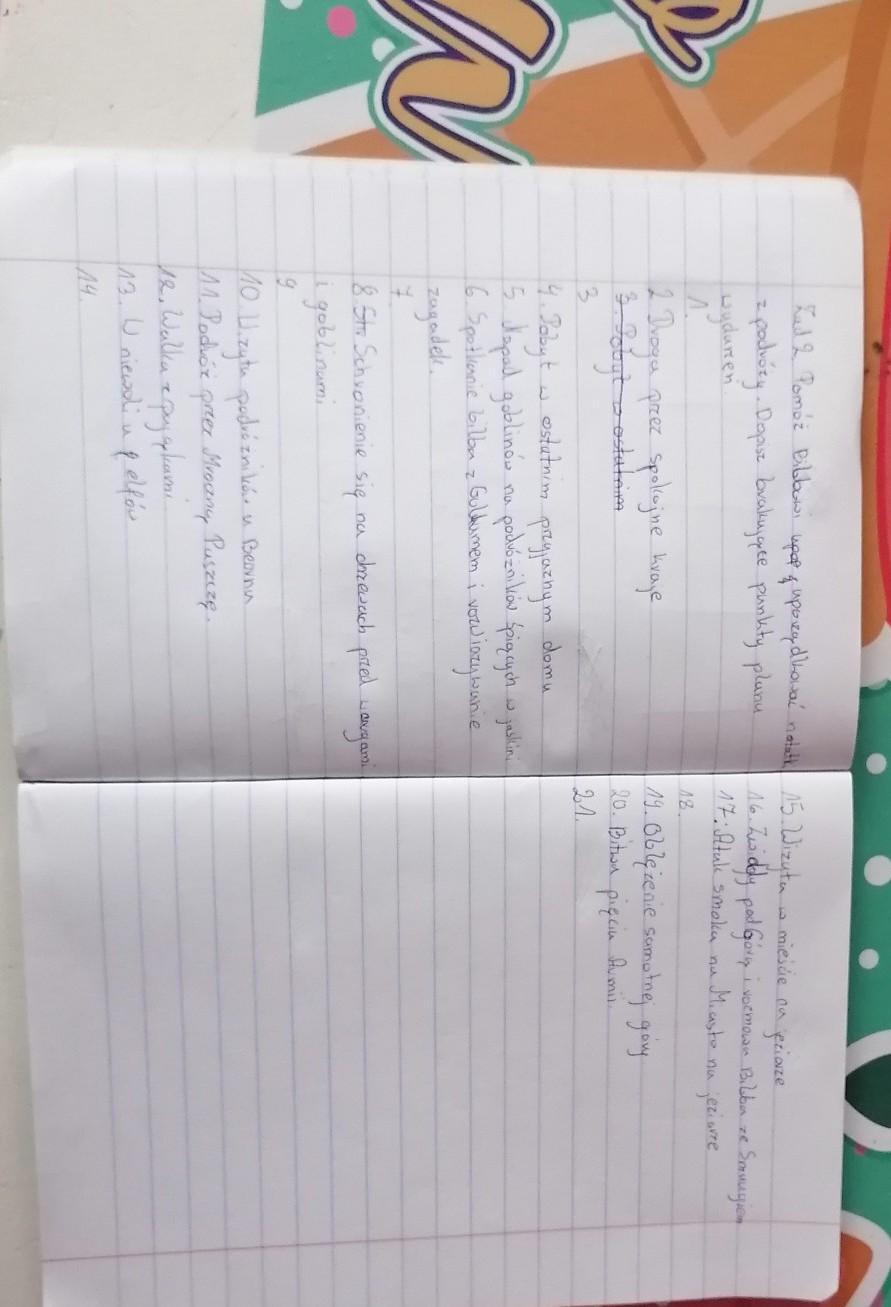 Zad 2 Pomóż Bilbowi upor uporządkować notatk
z podróży. Dopisz brakujące punkty planu
wydarzeń.
1.
2 Droga przez spokojne kraje
3. Pobyt w ostatnim
3
4. Pobyt w ostatnim przyjaznym domu
5 Napad goblinów na podróżników śpiących w jaskini
6 Spotkanie bilba z Gollumem i rozwiązywanie
zagadek.
7
8. Str Schronienie się na drzewach przed wargami
i goblinami
9
10 Wizyta podróżników u Beorna
11 Podróż przez Mroczną Puszczę.
12. Walka z pająkami
13. W niewoli u elfów
14.
15. Wizyta w mieście na jeziorze
16. Zwiady pod Górą i rozmowa Bilba ze Smaugiem
17. Atak smoka na Miasto na jeziorze
18.
19. Oblężenie samotnej góry
20. Bitwa pięciu Armii.
21.